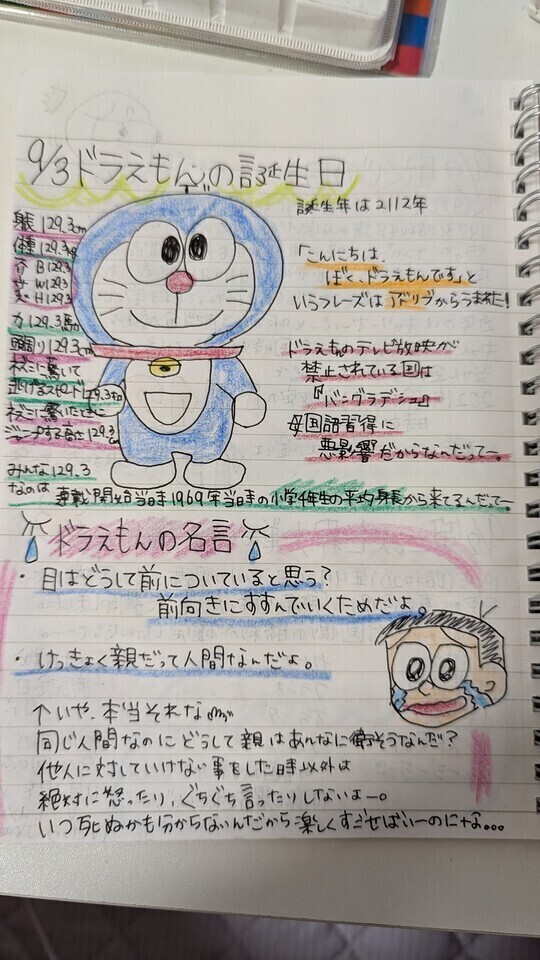 9/3ドラえもんの誕生日
誕生年は2112年
身長129.3cm
体重129.3kg
B129.3
W129.3
H129.3
力129.3馬力
頭周り129.3cm
ネズミに驚いて
逃げるスピード129.3km
ネズミに驚いたときに
ジャンプする高さ129.3cm
みんな129.3
なのは 連載開始当時1969年当時の小学4年生の平均身長から来てるんだってー
「こんにちは、
ぼく、ドラえもんです」と
いうフレーズはアドリブからうまれた!
ドラえものテレビ放映が
禁止されている国は
『バングラデシュ』
母国語習得に
悪影響だからなんだってー。
ドラえもんの名言
・目はどうして前についていると思う?
前向きにすすんでいくためだよ。
・けっきょく親だって人間なんだよ。
↑いや、本当それな
同じ人間なのにどうして親はあんなに偉そうなんだ?
他人に対していけない事をした時以外は
絶対に怒ったり、ぐちぐち言ったりしないよー。
いつ死ぬかも分からないんだから楽しくすごせばいーのにな...